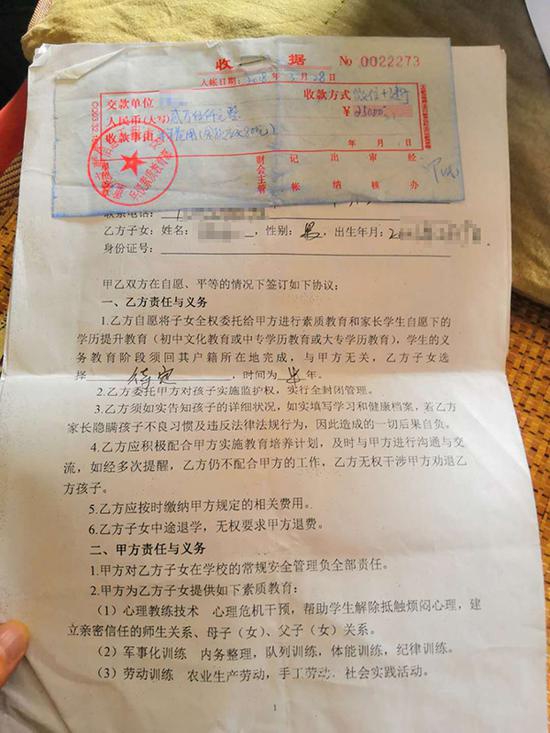 收 据 No 0022273
入帐日期：2018年5月28日
交款单位 收款方式 微信+银行
人民币(大写) 贰万伍仟元整 ￥ 25000
收款事由
年 月 日
财会主管 记帐 出纳 审核 经办
联系电话：
乙方子女：姓名： ，性别：男，出生年月：2
身份证号：
甲乙双方在自愿、平等的情况下签订如下协议：
一、乙方责任与义务
1.乙方自愿将子女全权委托给甲方进行素质教育和家长学生自愿下的
学历提升教育（初中文化教育或中专学历教育或大专学历教育），学生的义
务教育阶段须回其户籍所在地完成，与甲方无关，乙方子女选
择 待定 ，时间为 半 年。
2.乙方委托甲方对孩子实施监护权，实行全封闭管理。
3.乙方须如实告知孩子的详细状况，如实填写学习和健康档案，若乙方
家长隐瞒孩子不良习惯及违反法律法规行为，因此造成的一切后果自负。
4.乙方应积极配合甲方实施教育培养计划，及时与甲方进行沟通与交
流，如经多次提醒，乙方仍不配合甲方的工作，乙方无权干涉甲方劝退乙
方孩子。
5.乙方应按时缴纳甲方规定的相关费用。
6.乙方子女中途退学，无权要求甲方退费。
二、甲方责任与义务
1.甲方对乙方子女在学校的常规安全管理负全部责任。
2.甲方为乙方子女提供如下素质教育：
（1）心理教练技术 心理危机干预，帮助学生解除抵触烦闷心理，建
立亲密信任的师生关系、母子（女）、父子（女）关系。
（2）军事化训练 内务整理，队列训练，体能训练，纪律训练。
（3）劳动训练 农业生产劳动，手工劳动，社会实践活动。
1